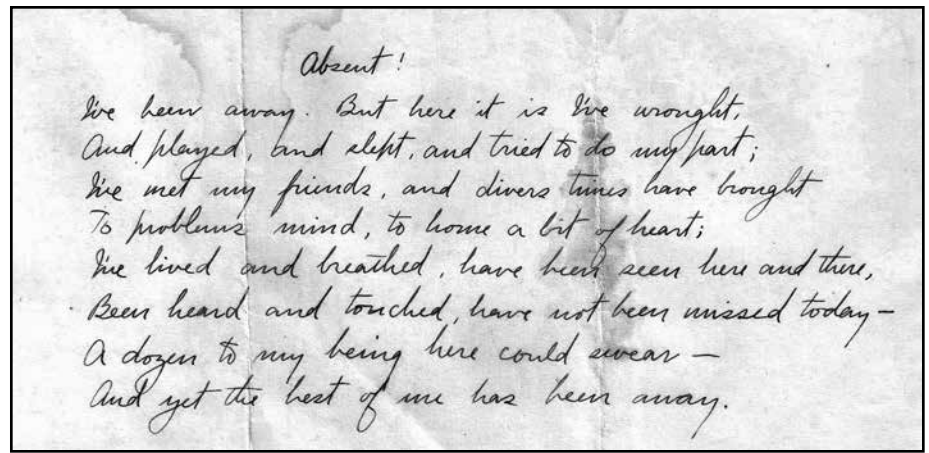 Absent!
I've been away. But here it is I've wrought,
And played, and slept, and tried to do my part;
I've met my friends, and divers times have brought
To problems mind, to home a bit of heart;
I've lived and breathed, have been seen here and there,
Been heard and touched, have not been missed today—
A dozen to my being here could swear—
And yet the best of me has been away.